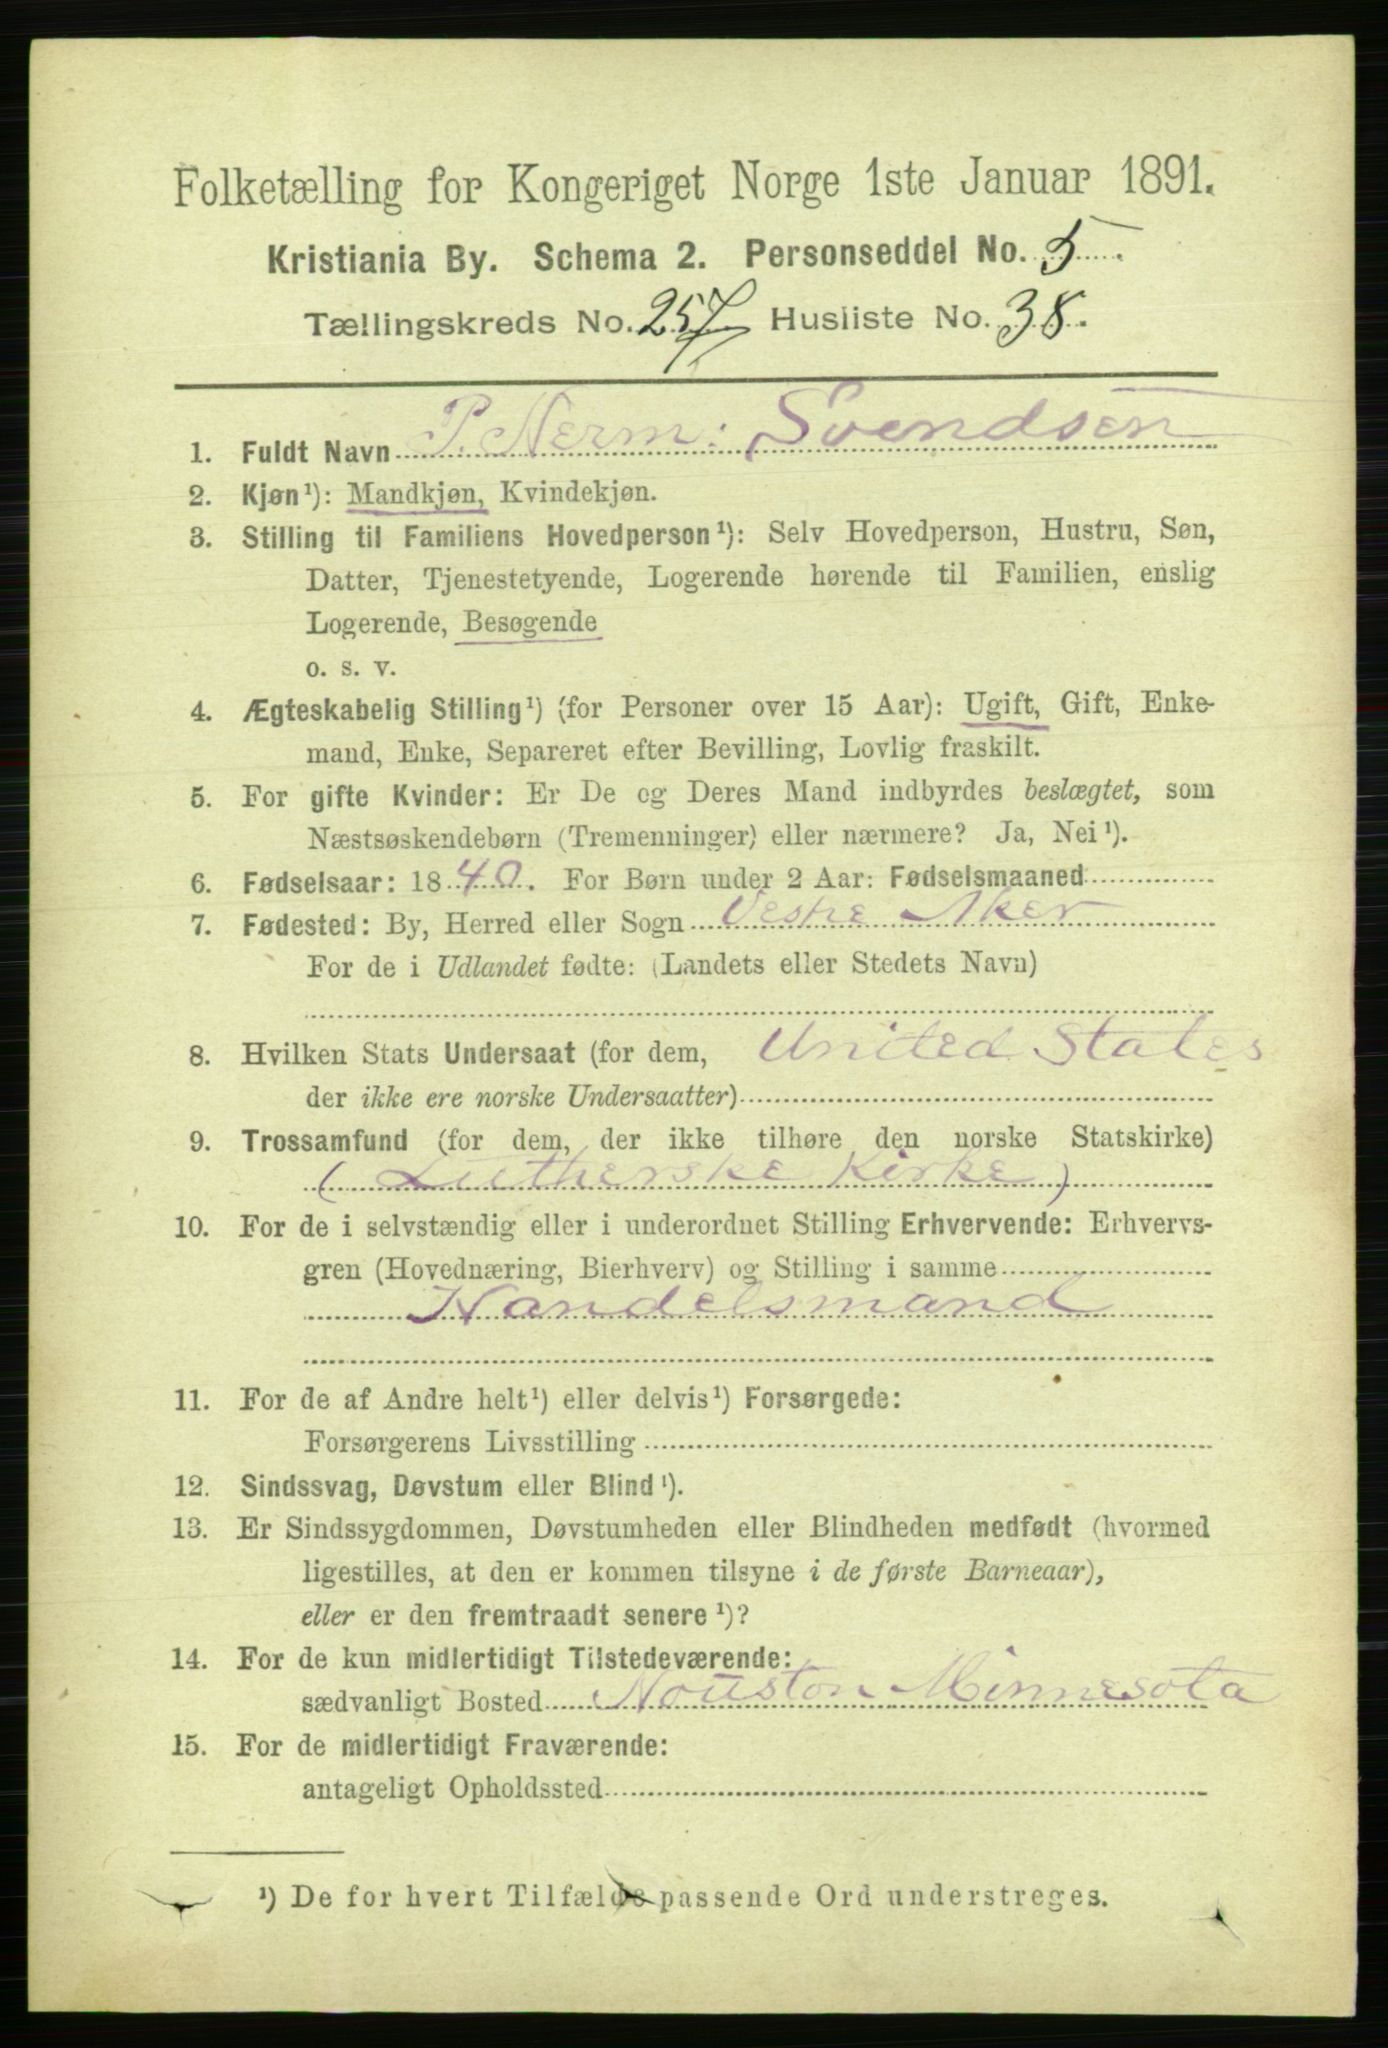 Folketælling for Kongeriget Norge 1ste Januar 1891.
Kristiania By. Schema 2. Personseddel No. 5
Tællingskreds No. 257 Husliste No. 38.
1. Fuldt Navn P. Herm: Svendsen
2. Kjøn¹): Mandkjøn, Kvindekjøn.
3. Stilling til Familiens Hovedperson¹): Selv Hovedperson, Hustru, Søn,
Datter, Tjenestetyende, Logerende hørende til Familien, enslig
Logerende, Besøgende
o. s. v.
4. Ægteskabelig Stilling¹) (for Personer over 15 Aar): Ugift, Gift, Enke-
mand, Enke, Separeret efter Bevilling, Lovlig fraskilt.
5. For gifte Kvinder: Er De og Deres Mand indbyrdes beslægtet, som
Næstsøskendebørn (Tremenninger) eller nærmere? Ja, Nei¹).
6. Fødselsaar: 1840. For Børn under 2 Aar: Fødselsmaaned
7. Fødested: By, Herred eller Sogn Vestre Aker
For de i Udlandet fødte: (Landets eller Stedets Navn)
8. Hvilken Stats Undersaat (for dem, United States
der ikke ere norske Undersaatter)
9. Trossamfund (for dem, der ikke tilhøre den norske Statskirke)
(Lutherske Kirke)
10. For de i selvstændig eller i underordnet Stilling Erhvervende: Erhvervs-
gren (Hovednæring, Bierhverv) og Stilling i samme
Handelsmand
11. For de af Andre helt¹) eller delvis¹) Forsørgede:
Forsørgerens Livsstilling
12. Sindssvag, Døvstum eller Blind¹).
13. Er Sindssygdommen, Døvstumheden eller Blindheden medfødt (hvormed
ligestilles, at den er kommen tilsyne i de første Barneaar),
eller er den fremtraadt senere¹)?
14. For de kun midlertidigt Tilstedeværende:
sædvanligt Bosted Houston Minnesota
15. For de midlertidigt Fraværende:
antageligt Opholdssted
¹) De for hvert Tilfælde passende Ord understreges.